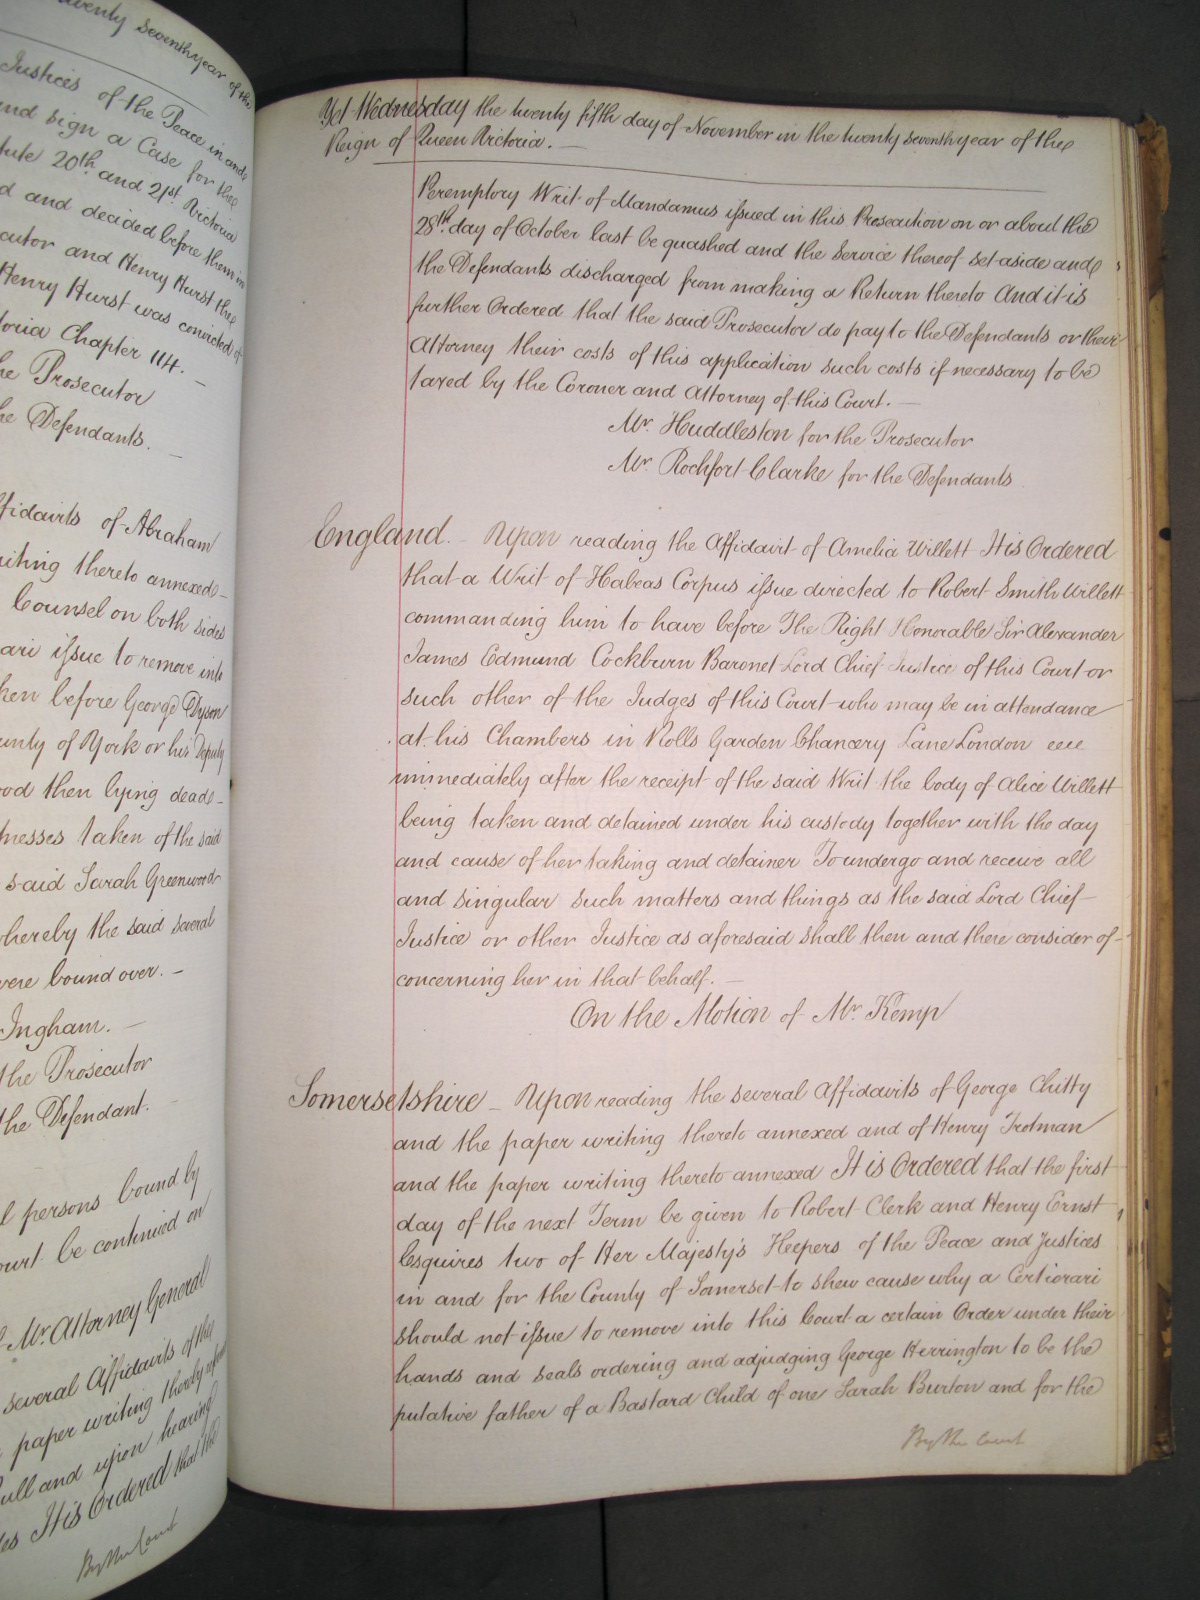 twenty seventh year of the
Justices of the Peace in and
and sign a Case for the
20th and 21st Victoria
and decided before them in
and Henry Hurst the
Henry Hurst was convicted of
Chapter 114. —
the Prosecutor
the Defendants. —
Affidavits of Abraham
writing thereto annexed
Counsel on both sides
issue to remove into
taken before George Dyson
County of York or his Deputy
then lying dead
Witnesses taken of the said
said Sarah Greenwood
whereby the said several
were bound over. —
Ingham. —
the Prosecutor
the Defendant. —
persons bound by
Court be continued on
Mr. Attorney General
several Affidavits of the
paper writing thereby
and upon hearing
It is Ordered that the
By the Court
Yet Wednesday the twenty fifth day of November in the twenty seventh year of the
Reign of Queen Victoria. —
Peremptory Writ of Mandamus issued in this Prosecution on or about the
28th day of October last be quashed and the Service thereof set aside and
the Defendants discharged from making a Return thereto And it is
further Ordered that the said Prosecutor do pay to the Defendants or their
Attorney their costs of this application such costs if necessary to be
taxed by the Coroner and Attorney of this Court. —
Mr. Huddleston for the Prosecutor
Mr. Rochfort Clarke for the Defendants
England. — Upon reading the Affidavit of Amelia Willett It is Ordered
that a Writ of Habeas Corpus issue directed to Robert Smith Willett
commanding him to have before The Right Honorable Sir Alexander
James Edmund Cockburn Baronet Lord Chief Justice of this Court or
such other of the Judges of this Court who may be in attendance
at his Chambers in Rolls Garden Chancery Lane London
immediately after the receipt of the said Writ the body of Alice Willett
being taken and detained under his custody together with the day
and cause of her taking and detainer To undergo and receive all
and singular such matters and things as the said Lord Chief
Justice or other Justice as aforesaid shall then and there consider of
concerning her in that behalf. —
On the Motion of Mr. Kemp
Somersetshire — Upon reading the several Affidavits of George Chitty
and the paper writing thereto annexed and of Henry Trotman
and the paper writing thereto annexed It is Ordered that the first
day of the next Term be given to Robert Clerk and Henry Ernst
Esquires two of Her Majesty's Keepers of the Peace and Justices
in and for the County of Somerset to shew cause why a Certiorari
should not issue to remove into this Court a certain Order under their
hands and seals ordering and adjudging George Herrington to be the
putative father of a Bastard Child of one Sarah Burton and for the
By the Court